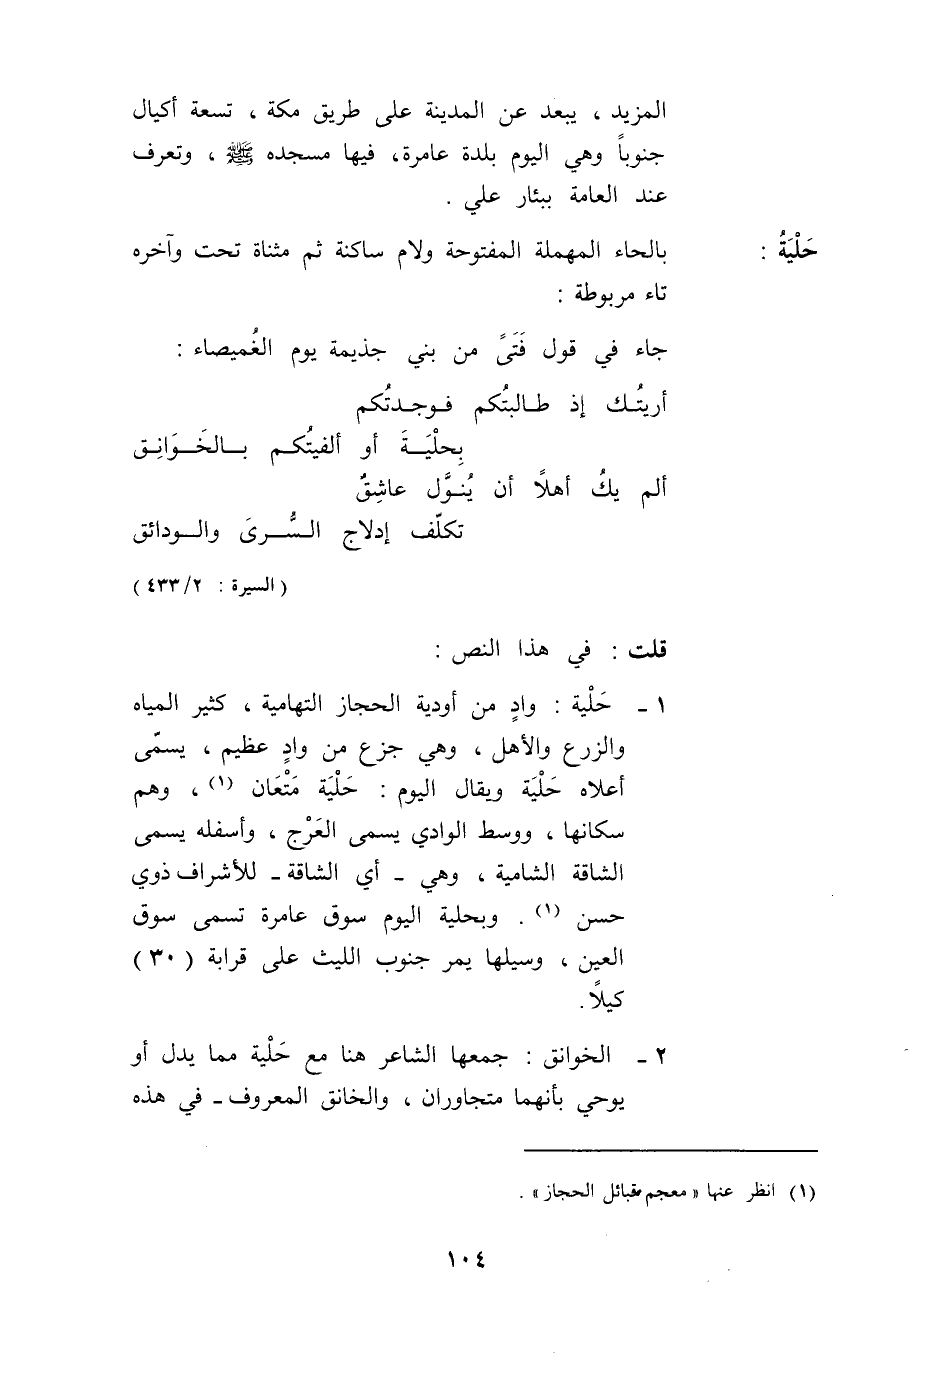 المزيد ، يبعد عن المدينة على طريق مكة ، تسعة أكيال
جنوباً وهي اليوم بلدة عامرة، فيها مسجده ﷺ ، وتعرف
عند العامة ببئار علي .
حَلْيَةُ : بالحاء المهملة المفتوحة ولام ساكنة ثم مثناة تحت وآخره
تاء مربوطة :
جاء في قول فَتَىً من بني جذيمة يوم الغُميصاء :
أريتُـك إذ طـالبتُكم فـوجـدتُكم
بِحلْيَـــةَ أو ألفيتُكـم بـالخَـوَانِـق
ألم يكُ أهلاً أن يُنـوَّل عاشِقٌ
تكلّف إدلاج السُّـرىَ والـودائق
( السيرة : ٤٣٣/٢ )
قلت : في هذا النص :
١ ـ حَلْية : وادٍ من أودية الحجاز التهامية ، كثير المياه
والزرع والأهل ، وهي جزع من وادٍ عظيم ، يسمّى
أعلاه حَلْيَة ويقال اليوم : حَلْيَة مَتْعَان (١) ، وهم
سكانها ، ووسط الوادي يسمى العَرْج ، وأسفله يسمى
الشاقة الشامية ، وهي ـ أي الشاقة ـ للأشراف ذوي
حسن (١) . وبحلية اليوم سوق عامرة تسمى سوق
العين ، وسيلها يمر جنوب الليث على قرابة ( ٣٠ )
كيلاً.
٢ ـ الخوانق : جمعها الشاعر هنا مع حَلْية مما يدل أو
يوحي بأنهما متجاوران ، والخانق المعروف ـ في هذه
(١) انظر عنها « معجم قبائل الحجاز» .
١٠٤